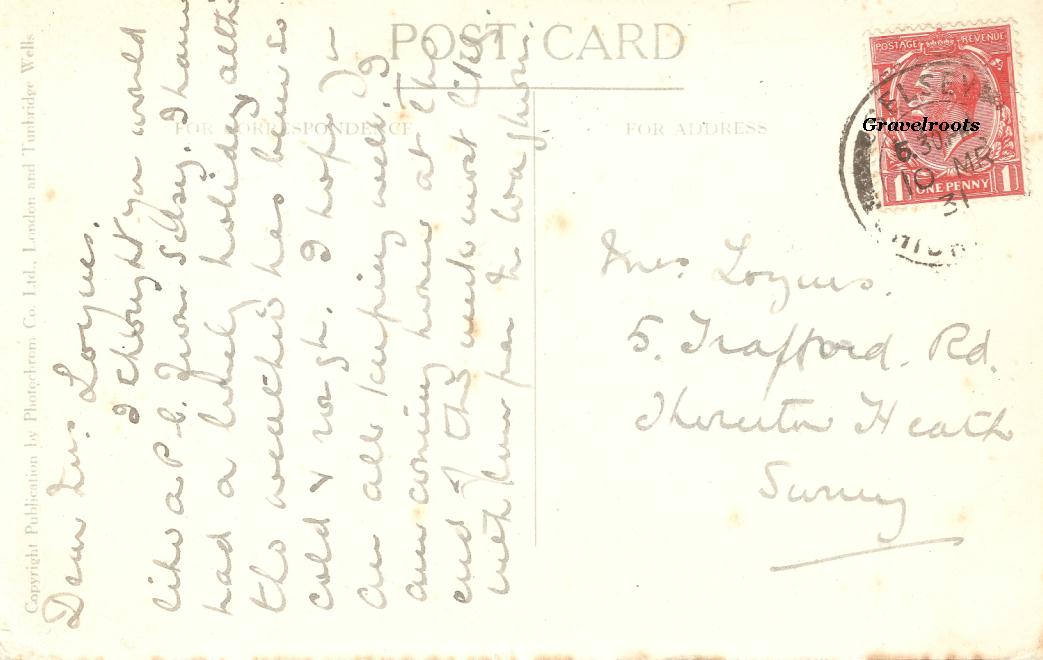 POST CARD
FOR CORRESPONDENCE
FOR ADDRESS
Copyright Publication by Photochrom Co. Ltd., London and Tunbridge Wells
Dear Mrs. Loynes.
I thought you would
like a P.C. from Selsey. I have
had a lovely holiday altho
the weather has been so
cold & rough. I hope you
are all keeping well. I
am coming home at the
end of this week most likely
Mrs. Loynes.
5. Trafford. Rd.
Thornton Heath
Surrey
POSTAGE REVENUE
ONE PENNY
1 1
SELSEY
10 MR
31
Gravelroots